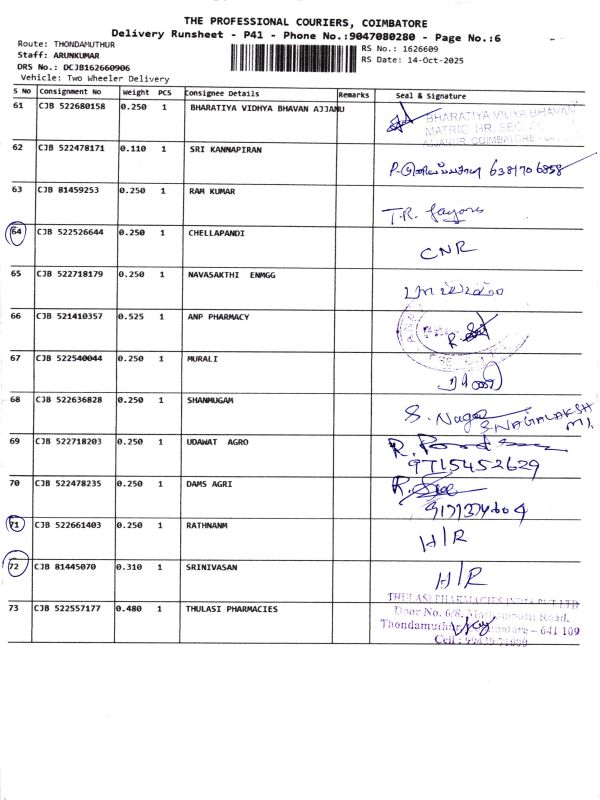 THE PROFESSIONAL COURIERS, COIMBATORE
Delivery Runsheet - P41 - Phone No.:9047080280 - Page No.:6
Route: THONDAMUTHUR
Staff: ARUNKUMAR
DRS No.: DCJB162660906
Vehicle: Two Wheeler Delivery
RS No.: 1626609
RS Date: 14-Oct-2025
S No Consignment No Weight PCS Consignee Details Remarks Seal & Signature
61 CJB 522680158 0.250 1 BHARATIYA VIDHYA BHAVAN AJJANU
BHARATIYA VIDYA BHAVAN
MATRIC. HR. SEC.
AJJANUR, COIMBATORE
62 CJB 522478171 0.110 1 SRI KANNAPIRAN
6381706858
63 CJB 81459253 0.250 1 RAM KUMAR
T.R.
64 CJB 522526644 0.250 1 CHELLAPANDI
CNR
65 CJB 522718179 0.250 1 NAVASAKTHI ENMGG
66 CJB 521410357 0.525 1 ANP PHARMACY
R.
67 CJB 522540044 0.250 1 MURALI
68 CJB 522636828 0.250 1 SHANMUGAM
S. Naga
S.NAGALAKSHMI.
69 CJB 522718203 0.250 1 UDAWAT AGRO
R.
9715452629
70 CJB 522478235 0.250 1 DAMS AGRI
R.
71 CJB 522661403 0.250 1 RATHNANM
H/R
72 CJB 81445070 0.310 1 SRINIVASAN
H/R
73 CJB 522557177 0.480 1 THULASI PHARMACIES
THULASI PHARMACIES INDIA PVT LTD
Door No. 6/8, Road,
Thondamuthur, - 641 109
Cell :